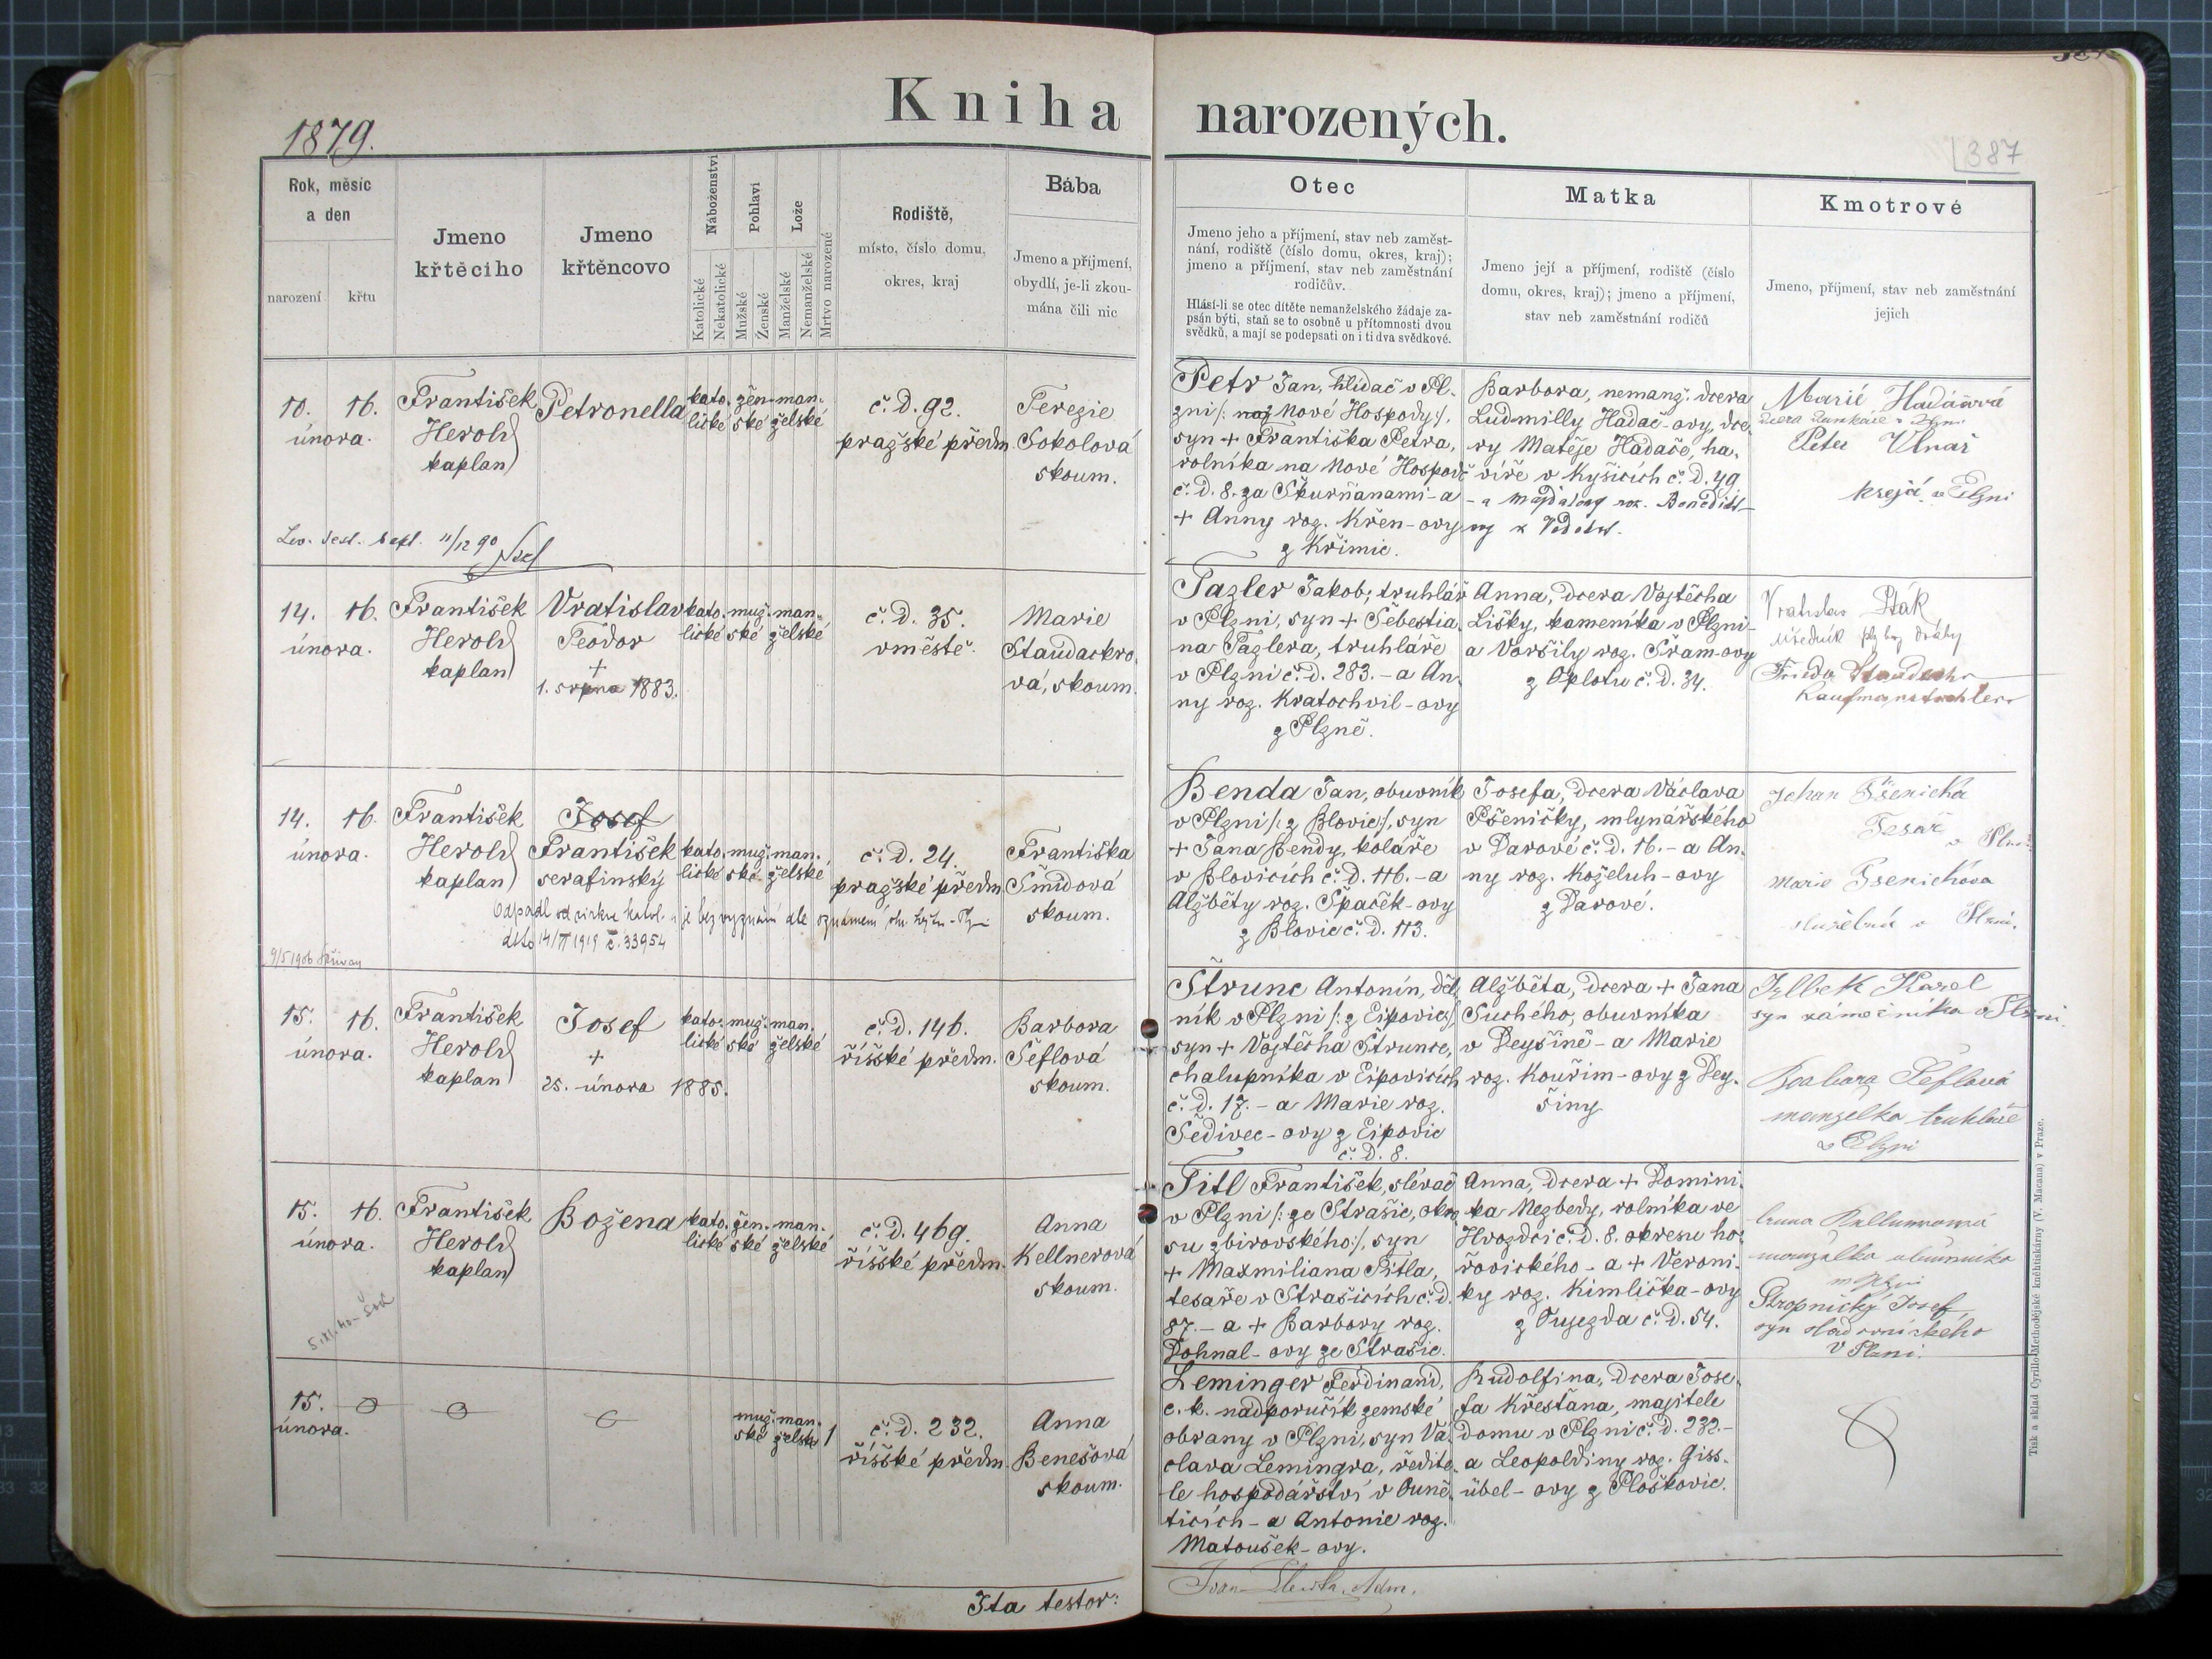 Kniha narozených.
1879.
387
Rok, měsíc a den
narození
křtu
Jmeno křtěcího
Jmeno křtěncovo
Náboženství
Katolické
Nekatolické
Pohlaví
Mužské
Ženské
Lože
Manželské
Nemanželské
Mrtvo narozené
Rodiště,
místo, číslo domu,
okres, kraj
Bába
Jmeno a příjmení,
obydlí, je-li zkou-
mána čili nic
Otec
Jmeno jeho a příjmení, stav neb zaměst-
nání, rodiště (číslo domu, okres, kraj);
jmeno a příjmení, stav neb zaměstnání
rodičův.
Hlásí-li se otec dítěte nemanželského žádaje za-
psán býti, staň se to osobně u přítomnosti dvou
svědků, a mají se podepsati on i ti dva svědkové.
Matka
Jmeno její a příjmení, rodiště (číslo
domu, okres, kraj); jmeno a příjmení,
stav neb zaměstnání rodičů
Kmotrové
Jmeno, příjmení, stav neb zaměstnání
jejich
10. 16.
února.
František
Herold
kaplan
Petronella
kato. žen. man.
lické ské želské
č. d. 92.
pražské předm.
Terezie
Sokolová
skoum.
Petr Jan, hlídač v Pl-
zni /: na Nové Hospody :/,
syn + Františka Petra,
rolníka na Nové Hospodě
č. d. 8. za Skurňanami - a
+ Anny roz. Křen-ovy
z Křimic.
Barbora, nemanž. dcera
Ludmilly Hadač-ovy, dce-
ry Matěje Hadače, ha-
víře v Kyšicích č. d. 49
- a Majdaleny roz. Benedikt-
ovy z
Marie
Petr Vlnař
krejčí v Plzni
11/12 90
14. 16.
února.
František
Herold
kaplan
Vratislav
Teodor
+
1. srpna 1883.
kato. muž. man-
lické ské želské
č. d. 35.
v městě.
Marie
Staudackro-
vá, skoum.
Tazler Jakob, truhlář
v Plzni, syn + Šebestia-
na Tazlera, truhláře
v Plzni č. d. 283. - a An-
ny roz. Kratochvil-ovy
z Plzně.
Anna, dcera Vojtěcha
Lišky, kameníka v Plzni -
a Voršily roz. Šram-ovy
z Oplotu č. d. 34.
Vratislav Pták
úředník dráhy
14. 16.
února.
František
Herold
kaplan
Josef
František
serafinský
kato. muž. man.
lické ské želské
č. d. 24.
pražské předm.
Františka
Šmídová
skoum.
Odpadl od církve katol. a je bez vyznání dle oznámení
dto 1919 č. 33954
9/5 1906
Benda Jan, obuvník
v Plzni /: z Blovic :/, syn
+ Jana Bendy, koláře
v Blovicích č. d. 116. - a
Alžběty roz. Špaček-ovy
z Blovic č. d. 113.
Josefa, dcera Václava
Pšeničky, mlynářského
v Darové č. d. 16. - a An-
ny roz. Koželuh-ovy
z Darové.
Johan Pšenicka
Tesař v Plzni
Marie Psenickova
služebná v Plzni.
15. 16.
února.
František
Herold
kaplan
Josef
+
25. února 1885.
kato. muž. man.
lické ské želské
č. d. 146.
říšské předm.
Barbora
Šeflová
skoum.
Štrunc Antonín, děl-
ník v Plzni /: z Ejpovic :/,
syn + Vojtěcha Štrunce,
chalupníka v Ejpovicích
č. d. 17. - a Marie roz.
Šedivec-ovy z Ejpovic
č. d. 8.
Alžběta, dcera + Jana
Suchého, obuvníka
v Deyšině - a Marie
roz. Kouřim-ovy z Dey-
šiny
Karel
syn zámečníka v Plzni.
Barbara Šeflová
manzelka truhláře
v Plzni
15. 16.
února.
František
Herold
kaplan
Božena
kato. žen. man.
lické ské želské
č. d. 469.
říšské předm.
Anna
Kellnerová
skoum.
Titl František, slévač
v Plzni /: ze Strašic, okre-
su zbirovského :/, syn
+ Maxmiliana Titla,
tesaře v Strašicích č. d.
87. - a + Barbory roz.
Dohnal-ovy ze Strašic.
Anna, dcera + Domini-
ka Nezbedy, rolníka ve
Hvozdci č. d. 8. okresu ho-
řovického - a + Veroni-
ky roz. Kimlička-ovy
z Oujezda č. d. 54.
Anna
manzelka
Stropnický Josef
syn
v Plzni.
15.
února.
muž. man.
ské želské 1
č. d. 232.
říšské předm.
Anna
Benešová
skoum.
Leminger Ferdinand,
c. k. nadporučík zemské
obrany v Plzni, syn Vá-
clava Lemingra, ředite-
le hospodářství v Ouně-
ticích - a Antonie roz.
Matoušek-ovy.
Rudolfina, dcera Jose-
fa Křesťana, majitele
domu v Plzni č. d. 232. -
a Leopoldiny roz. Giss-
übel-ovy z Ploškovic.
Ita testor:
Tisk a sklad Cyrillo-Methodějské knihtiskárny (V. Macana) v Praze.